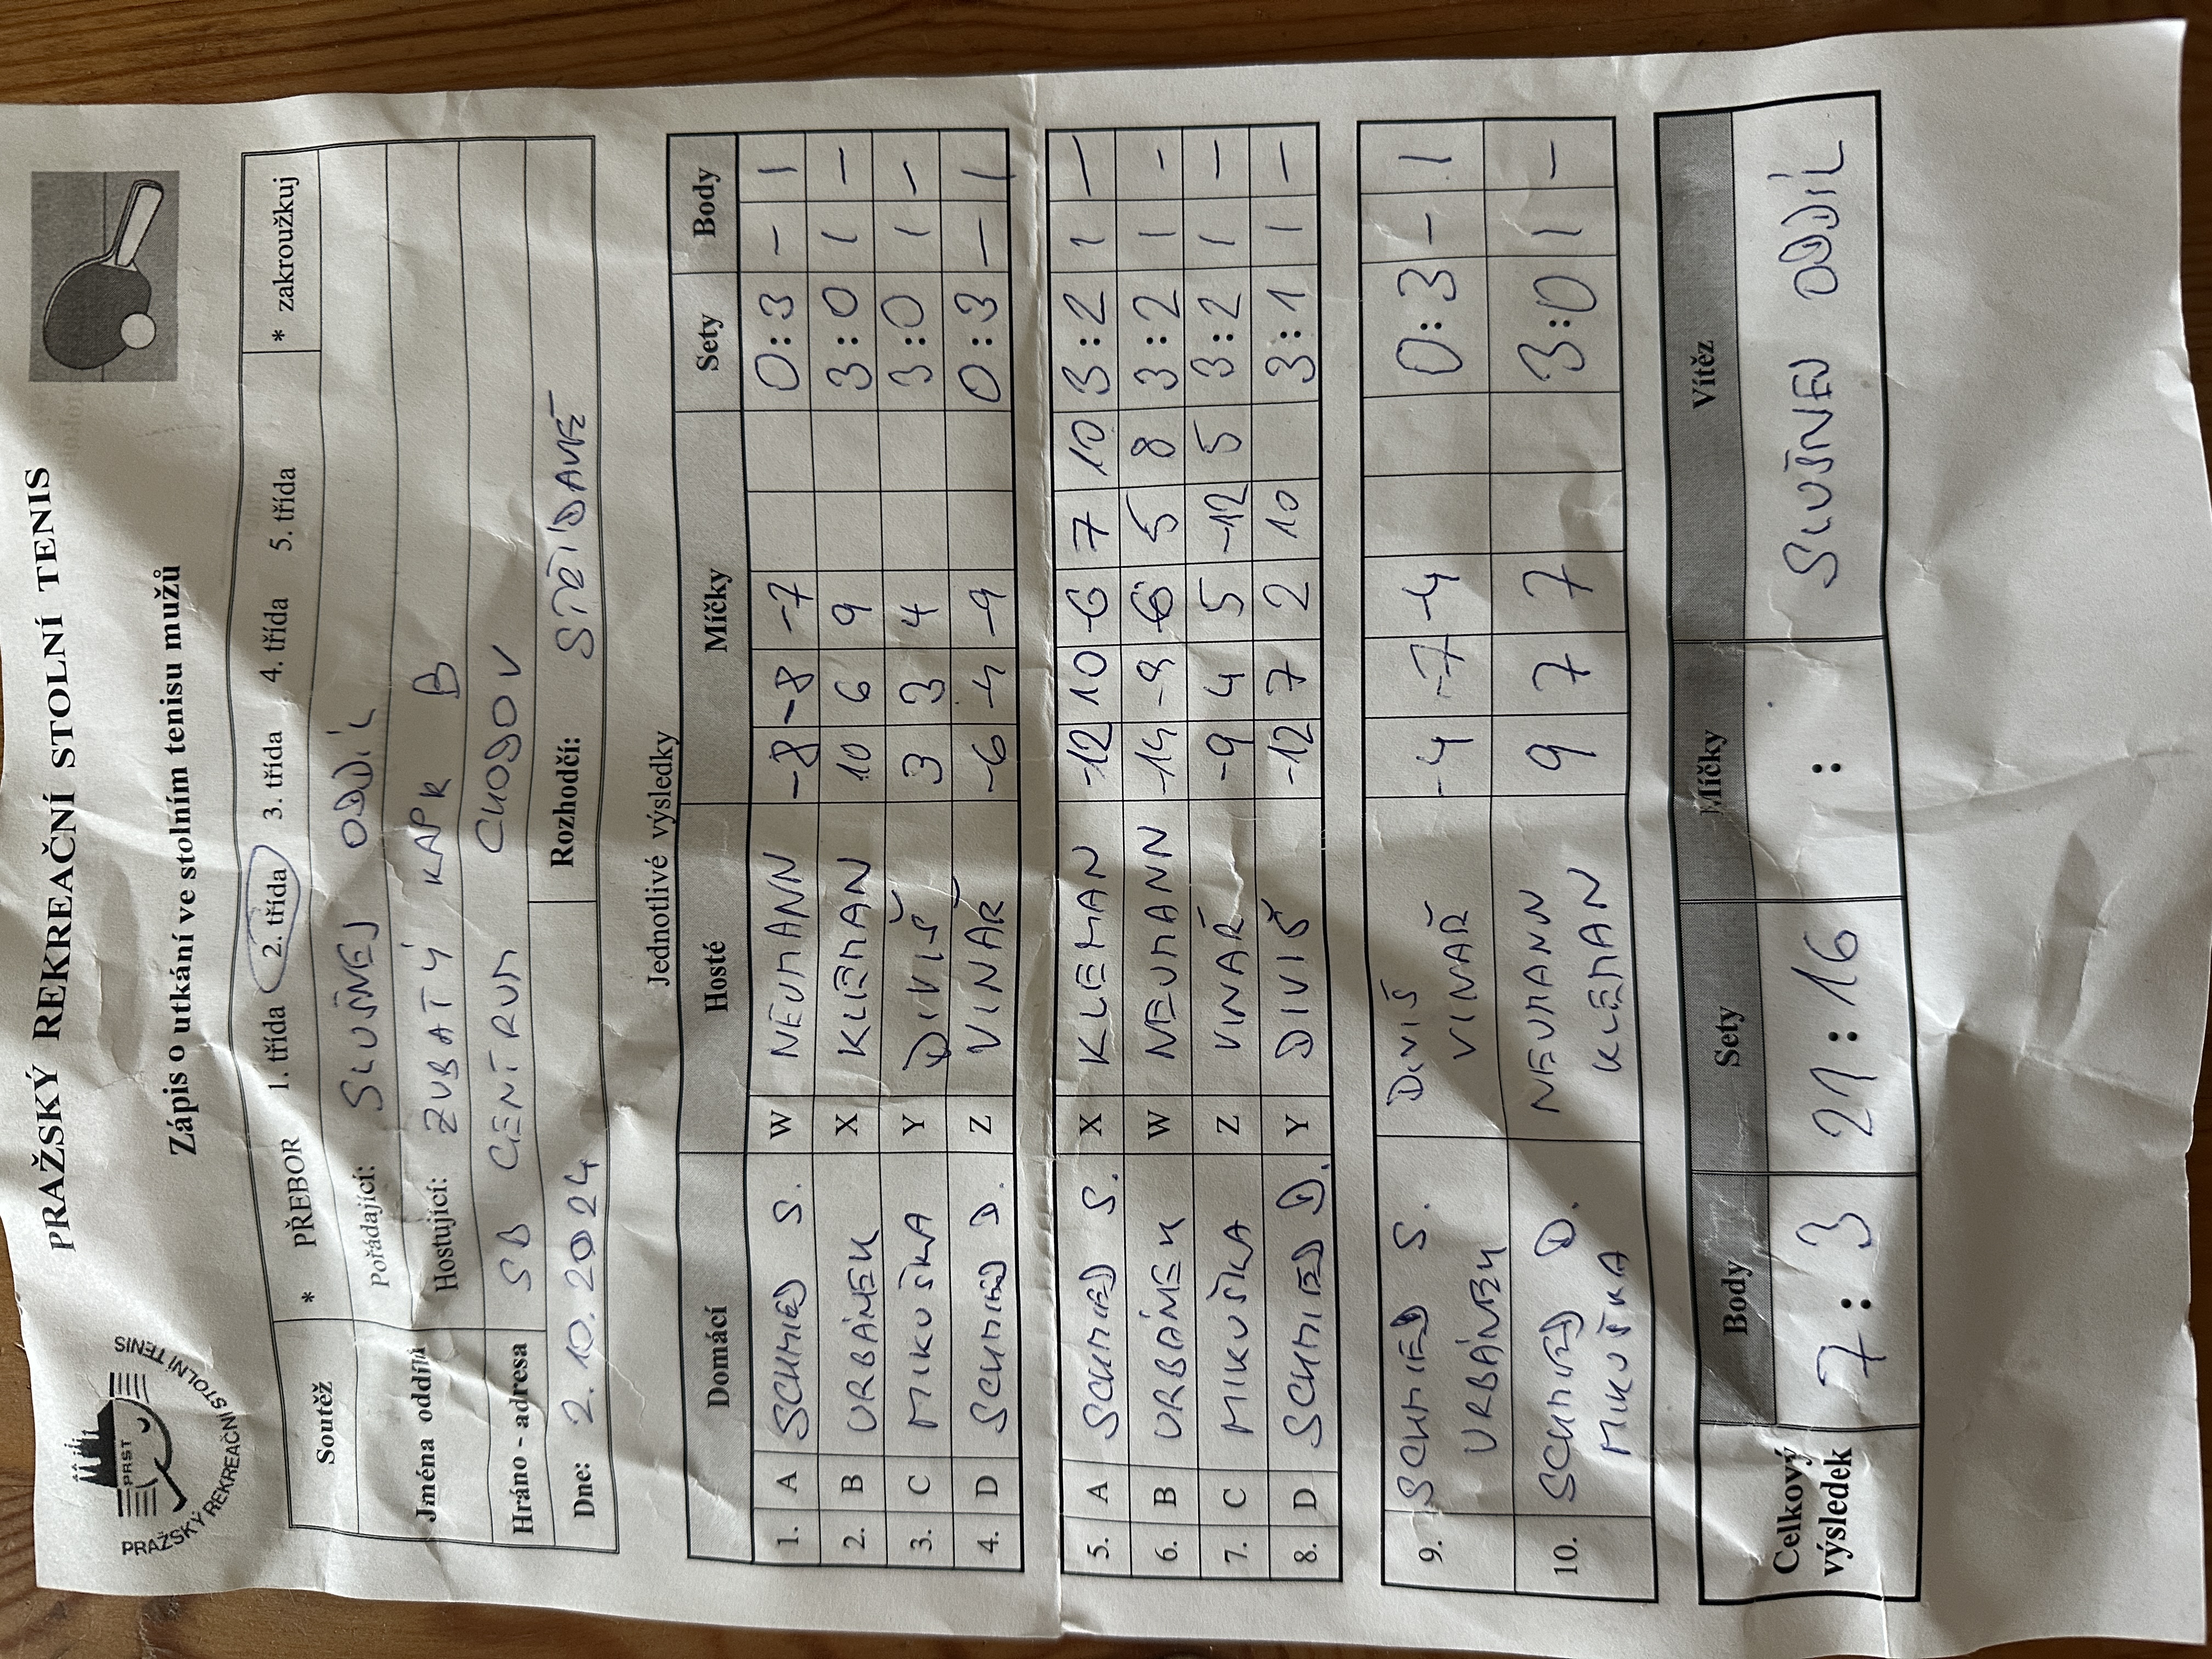 PRAŽSKÝ REKREAČNÍ STOLNÍ TENIS
PRST
PRAŽSKÝ REKREAČNÍ STOLNÍ TENIS
Zápis o utkání ve stolním tenisu mužů
Soutěž * PŘEBOR 1. třída 2. třída 3. třída 4. třída 5. třída * zakroužkuj
Jména oddílů Pořádající: SLUŠNEJ ODDÍL
Hostující: ZUBATÝ KAPR B
Hráno - adresa SB CENTRUM CHODOV
Dne: 2.10.2024 Rozhodčí: STŘÍDAVĚ
Jednotlivé výsledky
Domácí Hosté Míčky Sety Body
1. A SCHMIED S. W NEUMANN -8 -8 -7 0:3 - 1
2. B URBÁNEK X KLEMAN 10 6 9 3:0 1 -
3. C MIKUŠKA Y DIVIŠ 3 3 4 3:0 1 -
4. D SCHMIED D. Z VINAŘ -6 -4 -9 0:3 - 1
5. A SCHMIED S. X KLEMAN -12 10 -6 7 10 3:2 1 -
6. B URBÁNEK W NEUMANN -14 -9 6 5 8 3:2 1 -
7. C MIKUŠKA Z VINAŘ -9 4 5 -12 5 3:2 1 -
8. D SCHMIED D. Y DIVIŠ -12 7 2 10 3:1 1 -
9. SCHMIED S. DIVIŠ -4 -7 -4 0:3 - 1
URBÁNEK VINAŘ
10. SCHMIED D. NEUMANN 9 7 7 3:0 1 -
MIKUŠKA KLEMAN
Celkový výsledek Body Sety Míčky Vítěz
7:3 21:16 : SLUŠNEJ ODDÍL